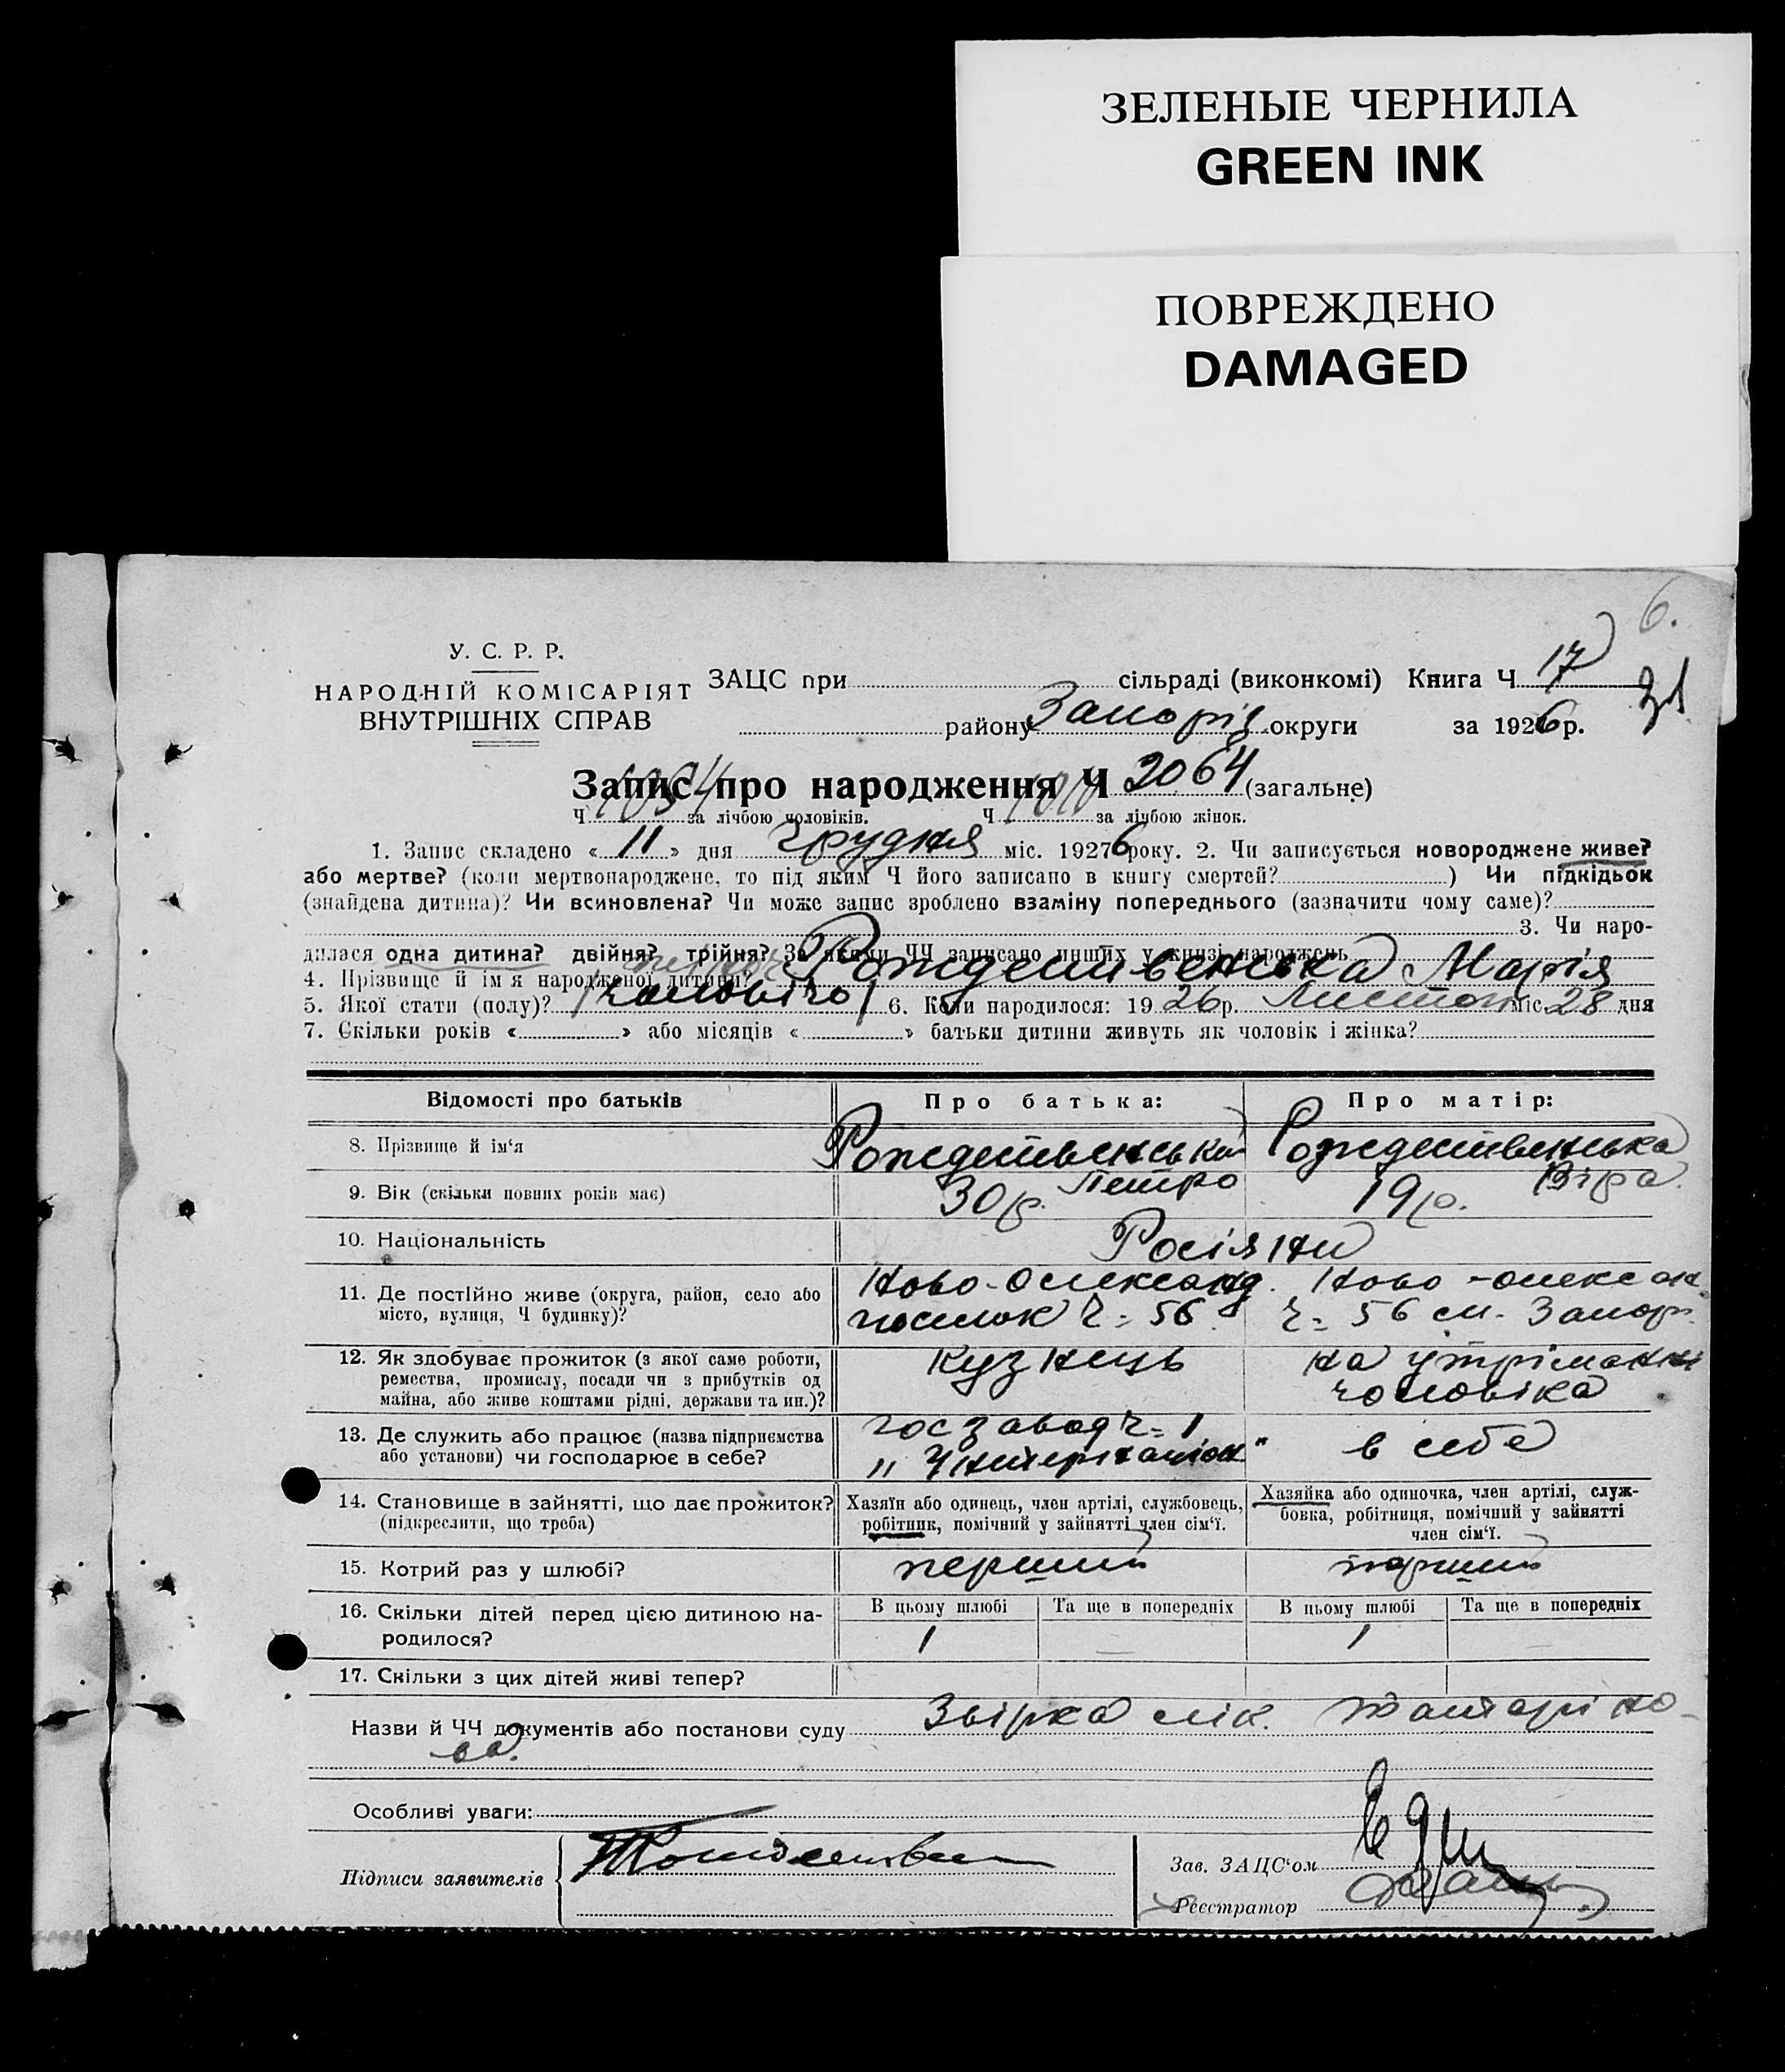 ЗЕЛЕНЫЕ ЧЕРНИЛА
GREEN INK
ПОВРЕЖДЕНО
DAMAGED
6.
У. С. Р. Р.
НАРОДНІЙ КОМІСАРІЯТ
ВНУТРІШНІХ СПРАВ
ЗАЦС при сільраді (виконкомі) Книга Ч 17
31
району Запоріз. округи за 1926 р.
Запис про народження Ч 2064 (загальне)
Ч 1054 за лічбою чоловіків. Ч 1010 за лічбою жінок.
1. Запис складено « 11 » дня Грудня міс. 1926 року. 2. Чи записується новороджене живе?
або мертве? (коли мертвонароджене, то під яким Ч його записано в книгу смертей? ) Чи підкідьок
(знайдена дитина)? Чи всиновлена? Чи може запис зроблено взаміну попереднього (зазначити чому саме)?
3. Чи наро-
дилася одна дитина? двійня? трійня? За якими ЧЧ записано инших у книзі народжень
4. Прізвище й ім'я народженої дитини? Рождественська Марія
5. Якої стати (полу)? /чоловічо/ 6. Коли народилося: 19 26 р. Листоп міс. 28 дня
7. Скільки років « » або місяців « » батьки дитини живуть як чоловік і жінка?
Відомості про батьків Про батька: Про матір:
8. Прізвище й ім'я Рождественський Петро Рождественська Віра
9. Вік (скільки повних років має) 30 р. 19 р.
10. Національність Росіяни
11. Де постійно живе (округа, район, село або місто, вулиця, Ч будинку)? Ново-Олександ. посьолок Ч= 56 Ново-Олексан. Ч= 56 см. Запор.
12. Як здобуває прожиток (з якої саме роботи, ремества, промислу, посади чи з прибутків од майна, або живе коштами рідні, держави та ин.)? Кузнець на утріманні чоловіка
13. Де служить або працює (назва підприємства або установи) чи господарює в себе? госзавод Ч= 1 „Интернаціон" в себе
14. Становище в зайнятті, що дає прожиток? (підкреслити, що треба) Хазяїн або одинець, член артілі, службовець, робітник, помічний у зайнятті член сім'ї. Хазяйка або одиночка, член артілі, служ-бовка, робітниця, помічний у зайнятті член сім'ї.
15. Котрий раз у шлюбі? перший перший
16. Скільки дітей перед цією дитиною на-родилося? В цьому шлюбі Та ще в попередніх В цьому шлюбі Та ще в попередніх
1 — 1
17. Скільки з цих дітей живі тепер?
Назви й ЧЧ документів або постанови суду Звірка лік.
ва.
Особливі уваги:
Підписи заявителів
Зав. ЗАЦС'ом
Реєстратор